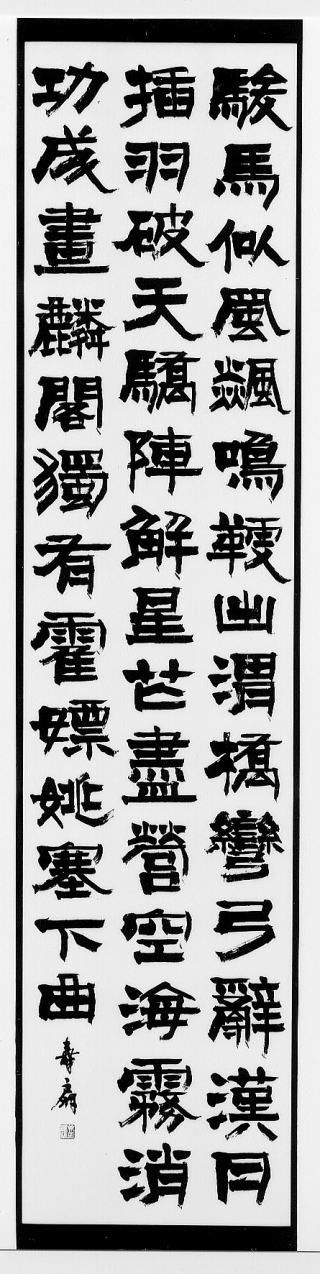 駿馬似風飇鳴鞭出渭橋彎弓辭漢月
插羽破天驕陣解星芒盡營空海霧消
功成畫麟閣獨有霍嫖姚塞下曲